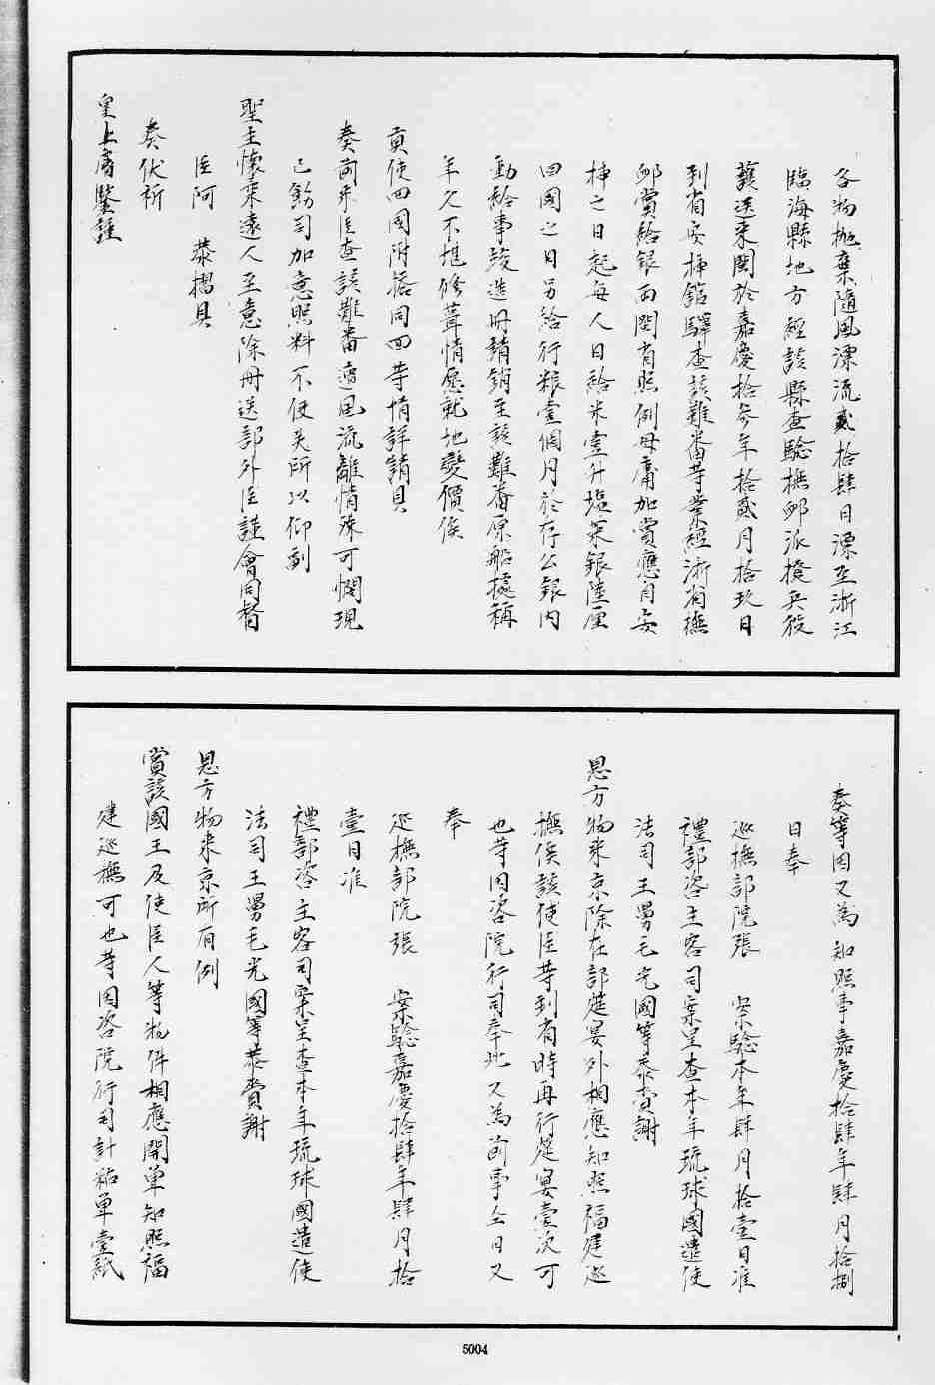 各物抛棄隨風漂流貳拾肆日漂至浙江
臨海縣地方經該縣查驗撫卹派撥兵役
護送來閩於嘉慶拾參年拾貳月拾玖日
到省安揷館驛查該難番等業經浙省撫
卹賞給銀兩閩省照例毋庸加賞應自安
揷之日起每人日給米壹升塩菜銀陸厘
回國之日另給行粮壹個月於存公銀内
動給事竣造册請銷至該難番原船據称
年久不堪修葺情愿就地變價俟
貢使回國附搭同回等情詳請具
奏前來臣查該難番遭風流離情殊可憫現
已飭司加意照料不使失所以仰副
聖主懷柔遠人至意除册送部外臣謹會同督
臣阿 恭摺具
奏伏祈
皇上睿鑒謹
奏等因又為知照事嘉慶拾肆年肆月拾捌
日奉
巡撫部院張 案驗本年肆月拾壹日准
禮部咨主客司案呈查本年琉球國遣使
法司王舅毛光國等恭賫謝
恩方物來京除在部筵宴外相應知照福建巡
撫俟該使臣等到省時再行筵宴壹次可
也等因咨院行司奉此又為前事仝日又
奉
巡撫部院張 案驗嘉慶拾肆年肆月拾
壹日准
禮部咨主客司案呈查本年琉球國遣使
法司王舅毛光國等恭賫謝
恩方物來京所有例
賞該國王及使臣人等物件相應開单知照福
建巡撫可也等因咨院行司計粘单壹紙
5004